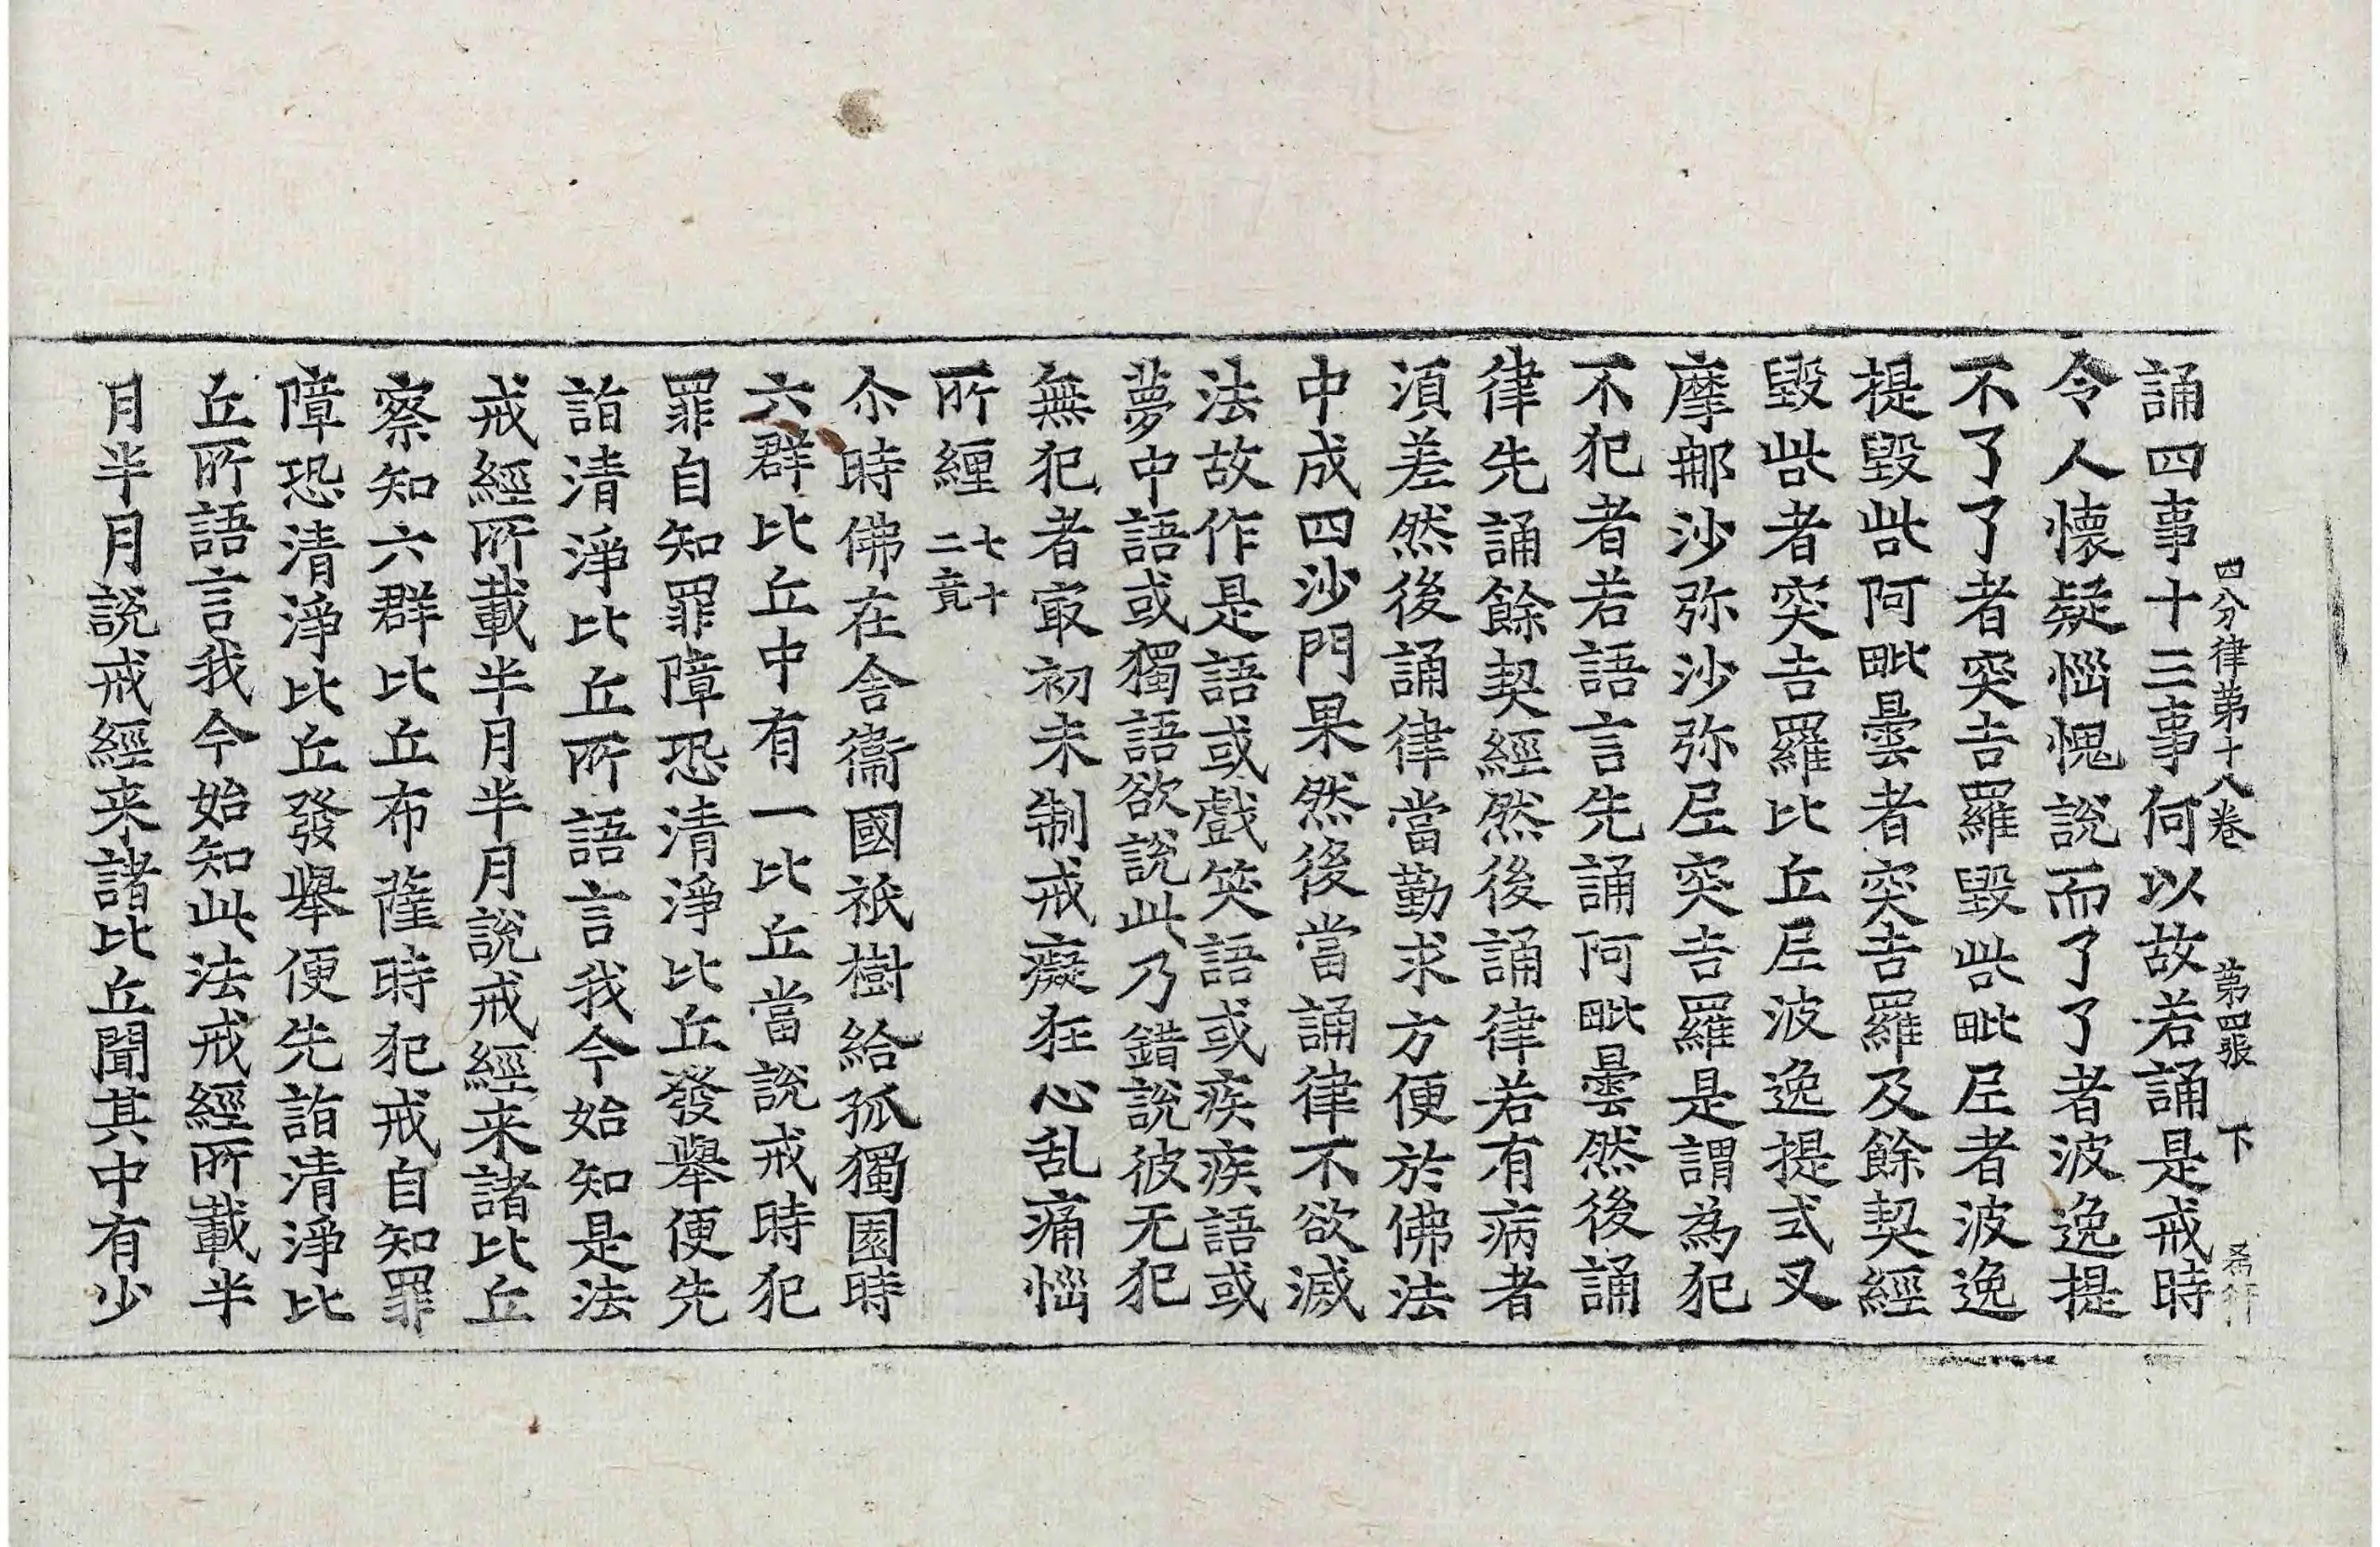 四分律第十八卷 第四張 下
誦四事十三事何以故若誦是戒時
令人懷疑惱愧說而了了者波逸提
不了了者突吉羅毀呰毗尼者波逸
提毀呰阿毗曇者突吉羅及餘契經
毀呰者突吉羅比丘尼波逸提式叉
摩那沙弥沙弥尼突吉羅是謂為犯
不犯者若語言先誦阿毗曇然後誦
律先誦餘契經然後誦律若有病者
須差然後誦律當勤求方便於佛法
中成四沙門果然後當誦律不欲滅
法故作是語或戲笑語或疾疾語或
夢中語或獨語欲說此乃錯說彼无犯
無犯者㝡初未制戒癡狂心乱痛惱
所纏 七十二竟
尒時佛在舍衞國祇樹給孤獨園時
六群比丘中有一比丘當說戒時犯
罪自知罪障恐清淨比丘發舉便先
詣清淨比丘所語言我今始知是法
戒經所載半月半月說戒經来諸比丘
察知六群比丘布薩時犯戒自知罪
障恐清淨比丘發舉便先詣清淨比
丘所語言我今始知此法戒經所載半
月半月說戒經来諸比丘聞其中有少